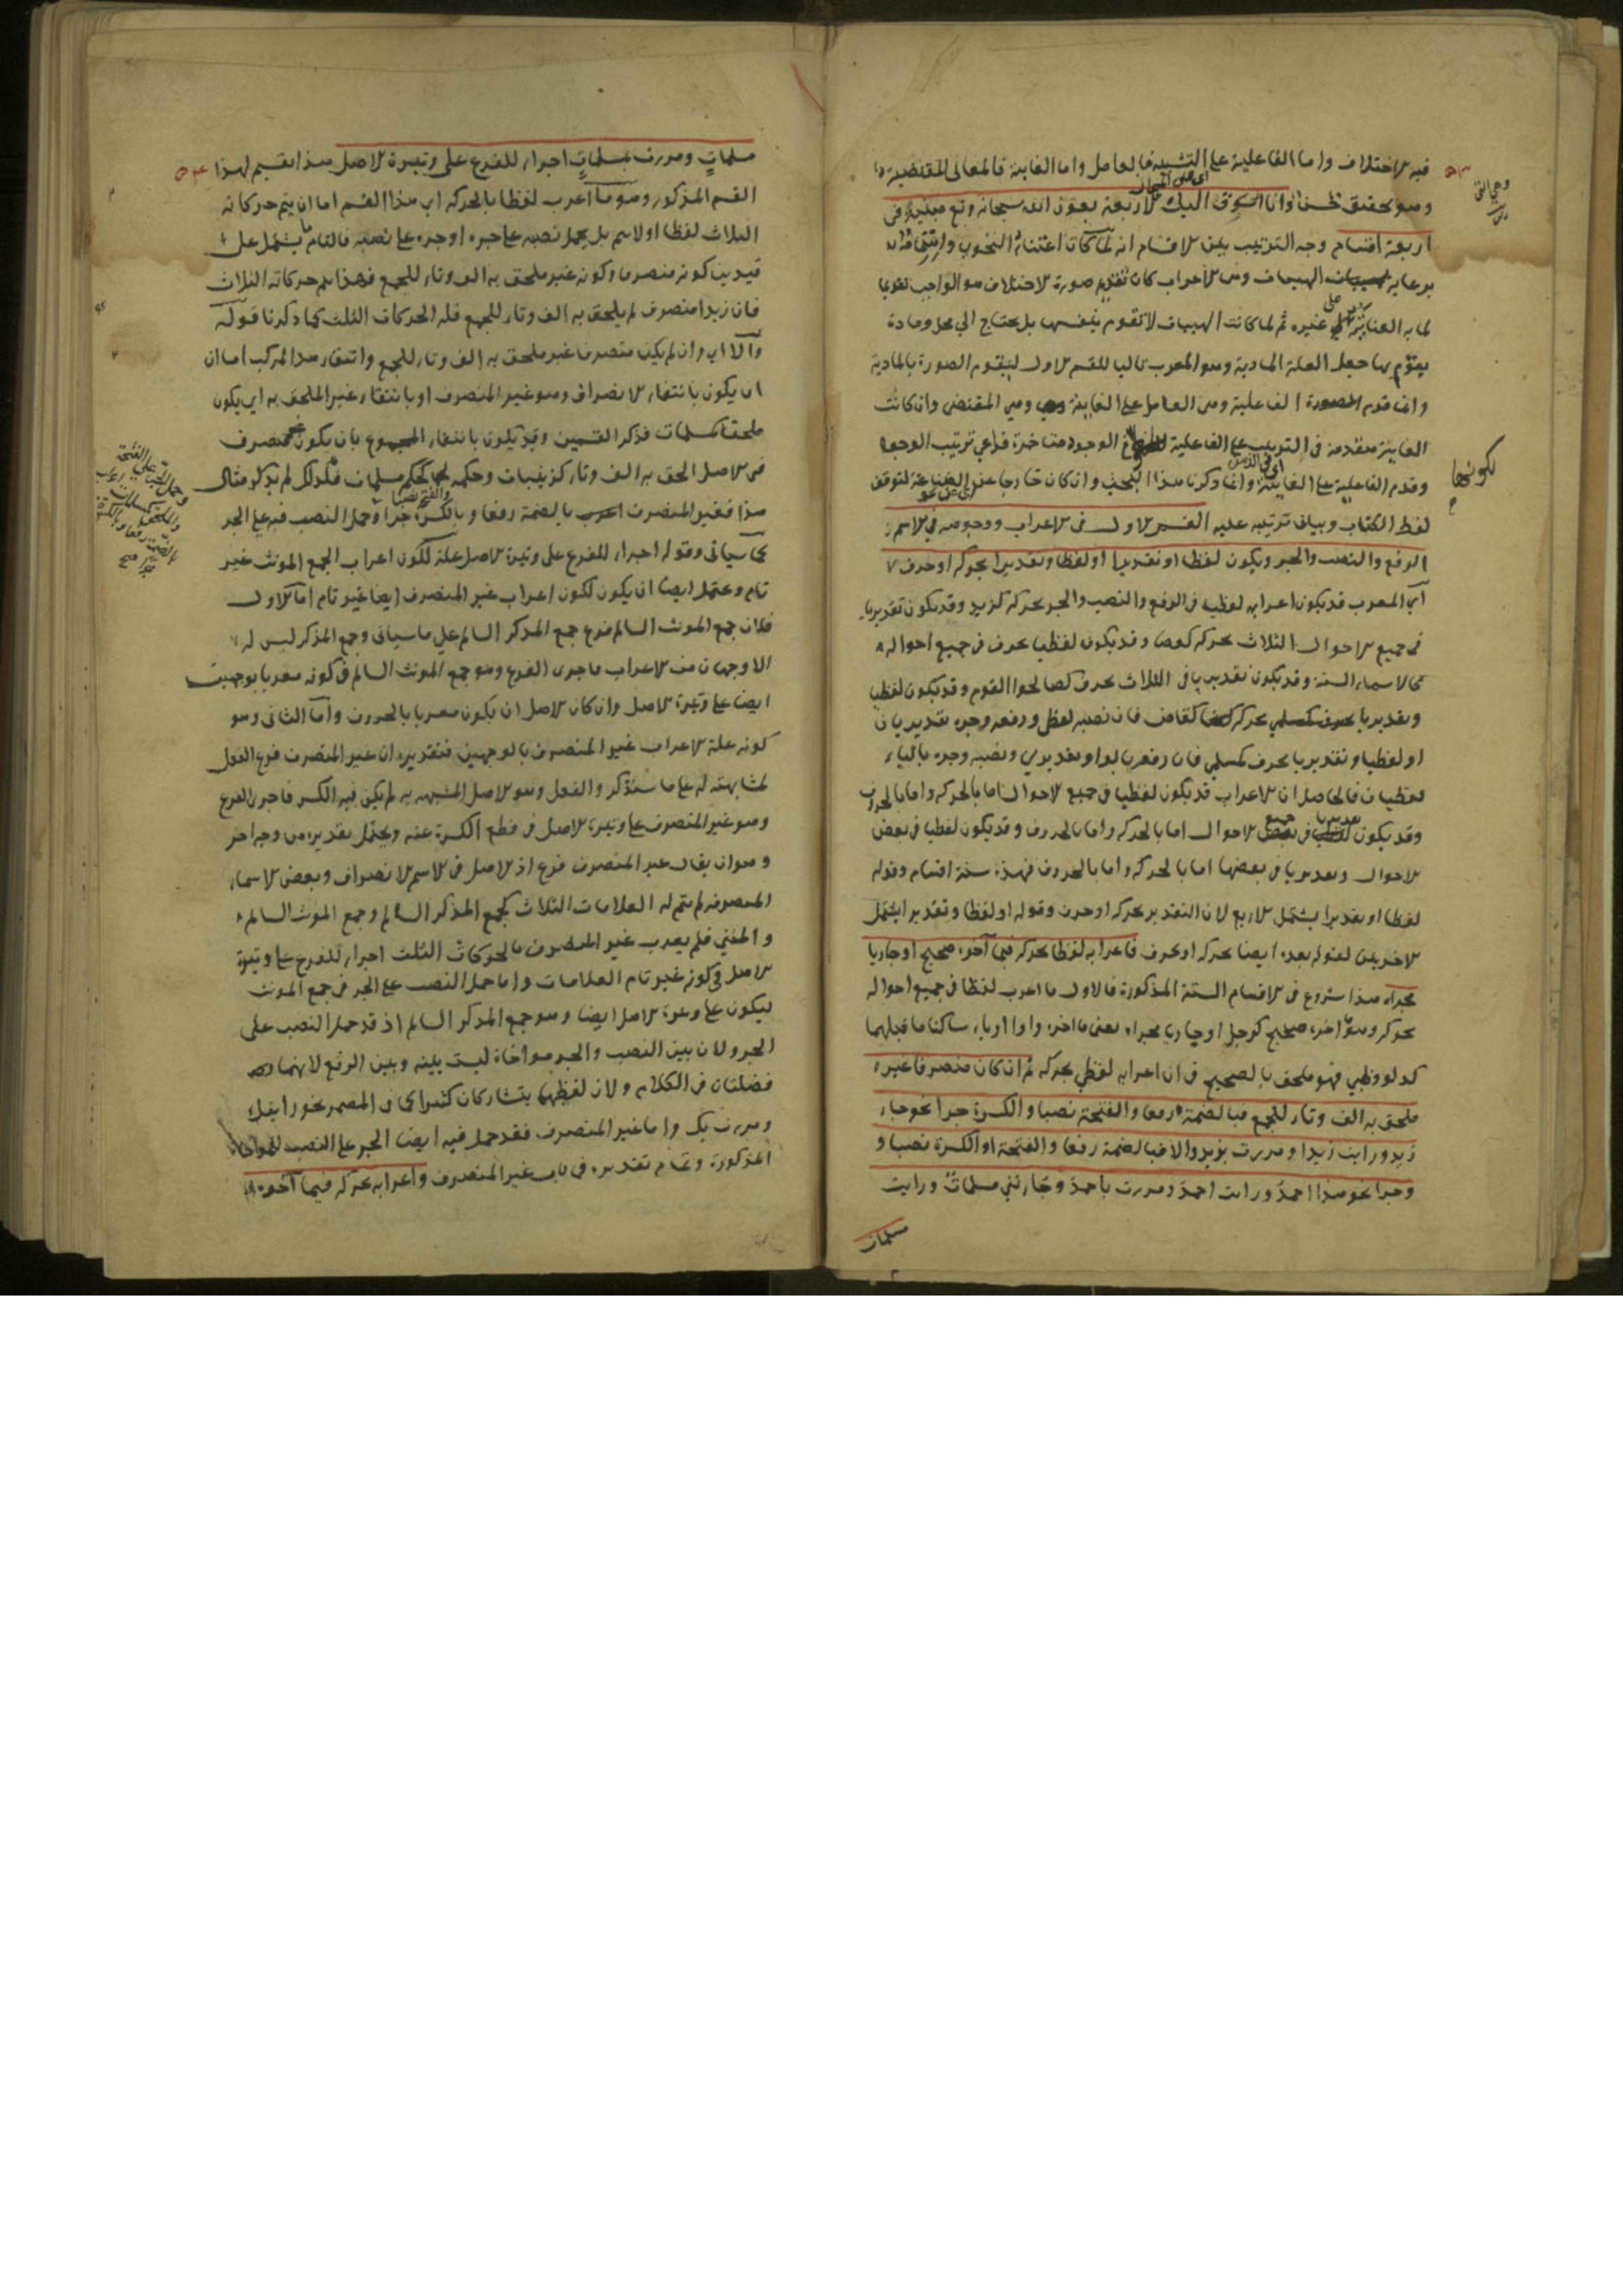 فيه الاختلاف واما الفاعلية على التشبيه فالعامل واما الغاية فالمعاني المقتضية
وهو تحقيق حسن وانا اسوق اليك الاربعة بعون الله سبحانه وتع مبنية في
اربعة اقسام وجه الترتيب بين الاقسام انه لما كان اعتناء النحوي واهتمامه
برعاية الهيئات ومن الاعراب كان تقديم صورة الاختلاف هو الواجب تقديما
لما به العناية على غيره ثم لما كانت الهيئات لا تقوم بنفسها بل يحتاج الى محل ومادة
يقوم بها جعل العلة المادية وهو المعرب تاليا للقسم الاول ليقوم الصورة بالمادية
وانما قدم الفاعلية ومن العامل على الغاية وهي المقتضى وان كانت
الغاية متقدمة في الترتيب على الفاعلية الوجود متاخرة فراعي ترتيب الوجود
وقدم الفاعلية على الغاية وانما ذكرنا هذا البحث وان كان خارجا عن الصناعة لتوقف
لفظ الكتاب وبيان ترتيبه عليه القسم الاول في الاعراب ووجوهه في الاسم
الرفع والنصب والجر ويكون لفظا او تقديرا او لفظا وتقديرا بحركة او حرف
اي المعرب قد يكون اعرابه لفظيا في الرفع والنصب والجر بحركة كزيد وقد يكون تقديريا
في جميع الاحوال الثلاث بحركة كعصا وقد يكون لفظيا بحرف في جميع احواله
كالاسماء الستة وقد يكون تقديريا في الثلاث بحرف كصالحوا القوم وقد يكون لفظيا
وتقديريا بحركة كقاض فان نصبه لفظي ورفعه وجره تقديريان
او لفظيا وتقديريا بحرف كمسلمي فان رفعه بالواو تقديري ونصبه وجره بالياء
لفظيان فالحاصل ان الاعراب قد يكون لفظيا في جميع الاحوال اما بالحركة واما بالحروف
وقد يكون تقديريا في جميع الاحوال اما بالحركة واما بالحروف وقد يكون لفظيا في بعض
الاحوال وتقديريا في بعضها اما بالحركة واما بالحروف فهذه ستة اقسام وقوله
لفظا او تقديرا يشتمل الاربع لان التقدير بحركة او حرف وقوله او لفظا وتقديرا يشتمل
الاخريين لقوله بعده ايضا بحركة او بحرف فاعرابه لفظا بحركة فيما آخره صحيح او جاريا
مجراه هذا شروع في الاقسام الستة المذكورة فالاول ما اعرب لفظا في جميع احواله
بحركة وهو ما اخره صحيح كرجل او جاريا مجراه يعني ما اخره واو او ياء ساكنا ما قبلهما
كدلو وظبي فهو ملحق بالصحيح في ان اعرابه لفظي بحركة ثم ان كان منصرفا غير
ملحق به الف وتاء للجمع فبالضمة رفعا والفتحة نصبا والكسرة جرا نحو جاء
زيد ورايت زيدا ومررت بزيد والا فبالضمة رفعا والفتحة او الكسرة نصبا و
وجرا نحو هذا احمد ورايت احمد ومررت باحمد وجاءتني مسلمات ورايت
مسلمات
لكونها
مسلمات ومررت بمسلمات اجراء للفرع على وتيرة الاصل هذا تقسيم لهذا
القسم المذكور وهو ما اعرب لفظا بالحركة اي هذا القسم اما ان يتم حركاته
الثلاث لفظا او لا يتم بل يحمل نصبه على جره او جره على نصبه فالتام ما يشتمل على
قيدين كونه منصرفا وكونه غير ملحق به الف وتاء للجمع فهذا يتم حركاته الثلاث
فان زيدا منصرف لم يلحق به الف وتاء للجمع فله الحركات الثلث كما ذكرنا قوله
والا اي وان لم يكن منصرفا غير ملحق به الف وتاء للجمع وانتفاء هذا المركب اما ان
ان يكون بانتفاء الانصراف وهو غير المنصرف او بانتفاء غير الملحق به اي يكون
ملحقا كمسلمات فذكر القسمين وقد يكون بانتفاء المجموع بان يكون غير منصرف
في الاصل الحق به الف وتاء كزينبات وحكمه كحكم مسلمات فلذلك لم يذكر مثال
هذا فغير المنصرف اعرب بالضمة رفعا وبالكسرة جرا وحمل النصب فيه على الجر
كما سياتي وقوله اجراء للفرع على وتيرة الاصل علة لكون اعراب الجمع المونث غير
تام ويحتمل ايضا ان يكون لكون اعراب غير المنصرف ايضا غير تام اما الاول
فلان جمع المونث السالم فرع جمع المذكر السالم على ما سياتي وجمع المذكر ليس له
الا وجهان من الاعراب فاجرى الفرع وهو جمع المونث السالم في كونه معربا بوجهين
ايضا على وتيرة الاصل وان كان الاصل ان يكون معربا بالحروف واما الثاني وهو
كونه علة لاعراب غير المنصرف بالوجهين فتقديره ان غير المنصرف فرع الفعل
لمشابهته له على ما سنذكر والفعل وهو الاصل المشبه به لم يكن فيه الكسر فاجرى الفرع
وهو غير المنصرف على وتيرة الاصل في قطع الكسرة عنه ويحتمل تقديره من وجه اخر
وهو ان يقال غير المنصرف فرع اذ الاصل في الاسم الانصراف وبعض الاسماء
المنصرفة لم يتم له العلامات الثلاث كجمع المذكر السالم وجمع المونث السالم
والمثنى فلم يعرب غير المنصرف بالحركات الثلث اجراء للفرع على وتيرة
الاصل في كونه غير تام العلامات واما حمل النصب على الجر في جمع المونث
ليكون على وتيرة الاصل ايضا وهو جمع المذكر السالم اذ قد حمل النصب على
الجر ولان بين النصب والجر مواخاة ليست بينه وبين الرفع لانهما
فضلتان في الكلام ولان لفظهما يتشاركان كثيرا كما في المضمر نحو رايتك
ومررت بك واما غير المنصرف فقد حمل فيه ايضا الجر على النصب للمواخاة
المذكورة وتمام تقديره في باب غير المنصرف واعرابه بحركة فيما آخره